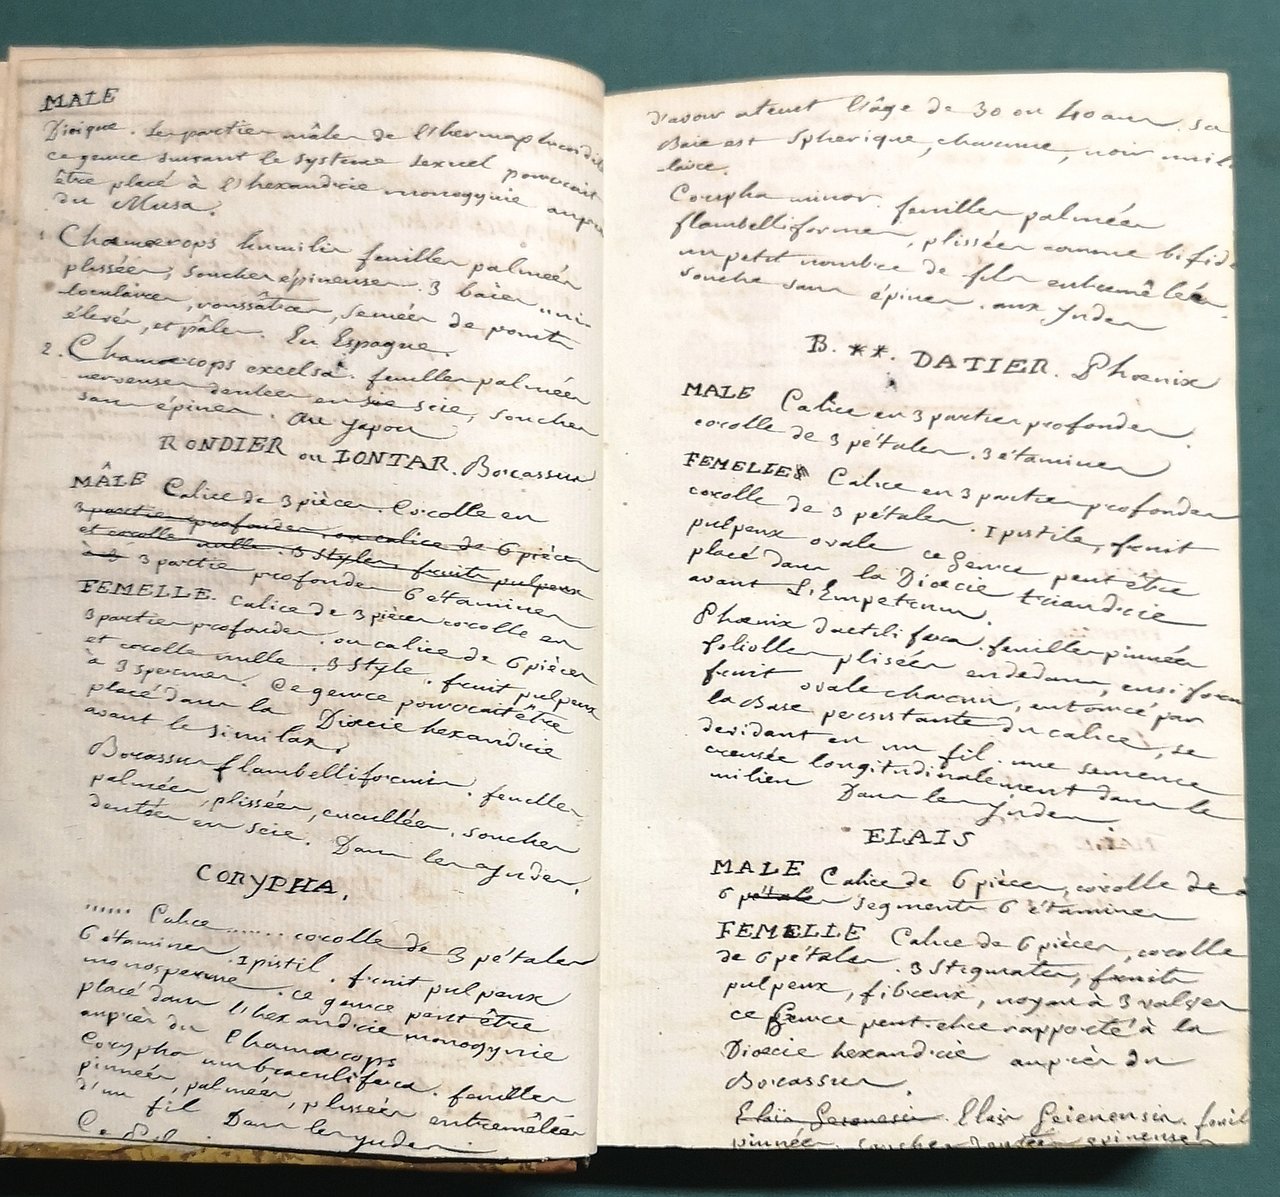 MALE
Dioique. Les parties mâles de l'hermaphrodite
ce genre suivant le systeme sexuel pourrait
être placé à l'hexandrie monogynie auprès
du Musa.
1 Chamærops humilis feuilles palmées
plissées, souches épineuses. 3 baies uni-
loculaires, roussâtres, semées de points
élevés, et pâles. En Espagne.
2. Chamærops excelsa. feuilles palmées
nerveuses dentées en scie scie, souches
sans épines. Au Japon
RONDIER ou LONTAR. Borassus
MÂLE Calice de 3 pièces. Corolle en
3 parties profondes. ou calice de 6 pièces
et corolle nulle. 3 Styles, fruits pulpeux
à 3 3 parties profondes 6 étamines
FEMELLE. Calice de 3 pièces corolle en
3 parties profondes. ou calice de 6 pièces
et corolle nulle. 3 Style. fruit pulpeux
à 3 spermes. Ce genre pourrait être
placé dans la Dioecie hexandrie
avant le similax.
Borassus flambelliformis. feuilles
palmées, plissées, cucullées, souches
dentées en scie. Dans les yndes.
CORYPHA.
...... Calice ...... corolle de 3 pétales
6 étamines. 1 pistil. fruit pulpeux
monosperme. ce genre peut être
placé dans l'hexandrie monogynie
auprès du Chamærops
Corypha umbraculifera. feuilles
pinnées, palmées, plissées entremêlées
d'un fil Dans les yndes
d'avoir ateint l'âge de 30 ou 40 ans. sa
Baie est Spherique, charnue, noir unilo
laire.
Corypha minor. feuilles palmées
flambelliformes, plissées comme bifides
un petit nombre de fils entremêlés.
souche sans épines. aux yndes
B. **. DATIER. Phœnix
MALE Calice en 3 parties profondes.
corolle de 3 pétales. 3 étamines
FEMELLES Calice en 3 parties profondes
corolle de 3 pétales. 1 pistile, fruit
pulpeux ovale ce genre peut être
placé dans la Dioecie triandrie
avant L'Empetrum.
Phœnix dactilifera. feuilles pinnées
folioles plisées endedans, ensiformes
fruit ovale charnu, entouré par
la Base persistante du calice, se
devidant en un fil. une semence
creusée longitudinalement dans le
milieu Dans les yndes
ELAIS
MALE Calice de 6 pièces, corolle de
6 pétales segments 6 étamines
FEMELLE Calice de 6 pièces, corolle
de 6 pétales. 3 Stigmates, fruits
pulpeux, fibreux, noyau à 3 valves
ce Genre peut etre rapporté à la
Dioecie hexandrie auprès du
Borassus
Elais Gesnesis. Elais Geienensis. feuil
pinnées. souches dentées épineuses